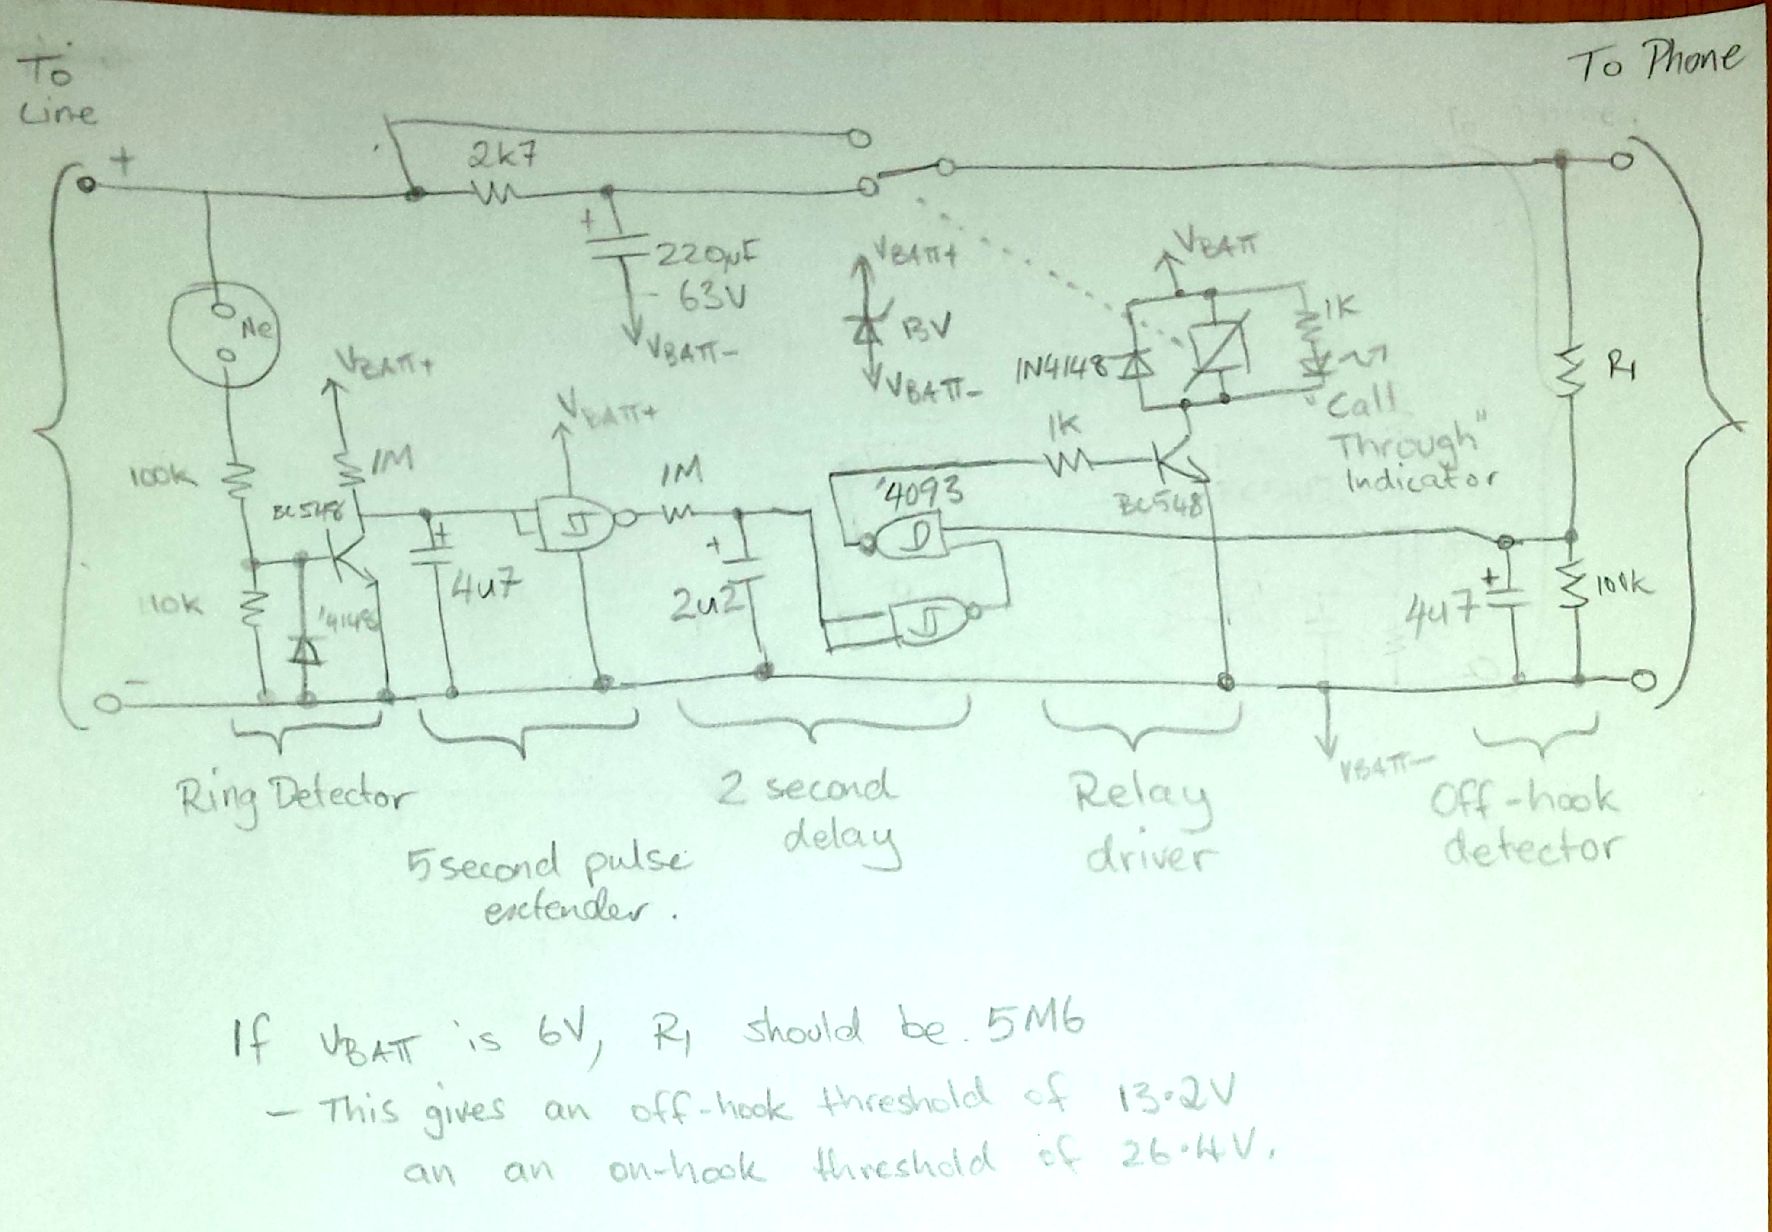 To
Line
To Phone
+
2k7
+
220µF
63V
VBATT-
Ne
VBATT+
VBATT+
VBATT-
VBATT
1N4148
1K
"Call
Through"
Indicator
R1
VBATT+
100k
1M
BC548
1M
1K
'4093
BC548
+
4u7
+
2u2
+
4u7
10k
'4148
-
VBATT-
Ring Detector
5 second pulse
extender.
2 second
delay
Relay
driver
Off-hook
detector
If VBATT is 6V, R1 should be 5M6
- This gives an off-hook threshold of 13.2V
an an on-hook threshold of 26.4V.